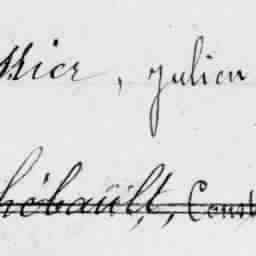 llier, Julien
hébault, Const